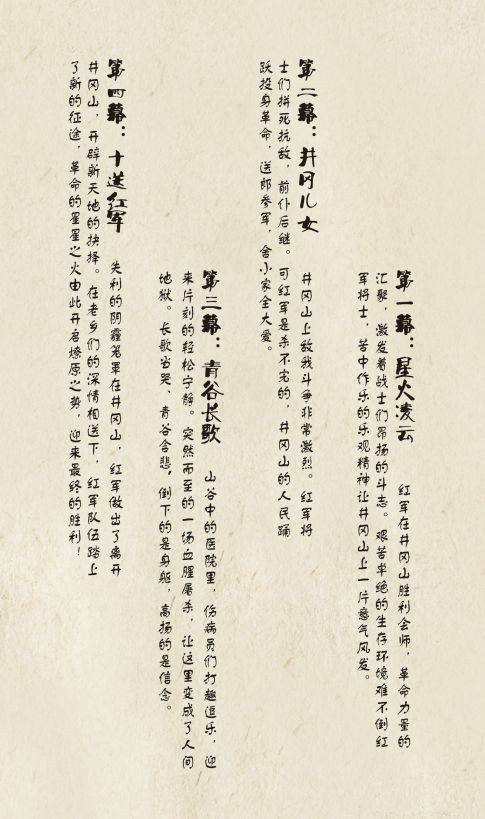 第一幕：星火凌云 红军在井冈山胜利会师，革命力量的
汇聚，激发着战士们昂扬的斗志。艰苦卓绝的生存环境难不倒红
军将士，苦中作乐的乐观精神让井冈山上一片意气风发。
第二幕：井冈儿女 井冈山上敌我斗争非常激烈。红军将
士们拼死抗敌，前仆后继。可红军是杀不完的，井冈山的人民踊
跃投身革命，送郎参军，舍小家全大爱。
第三幕：青谷长歌 山谷中的医院里，伤病员们打趣逗乐，迎
来片刻的轻松宁静。突然而至的一场血腥屠杀，让这里变成了人间
地狱。长歌当哭、青谷含悲，倒下的是身躯，高扬的是信念。
第四幕：十送红军 失利的阴霾笼罩在井冈山，红军做出了离开
井冈山，开辟新天地的抉择。在老乡们的深情相送下，红军队伍踏上
了新的征途，革命的星星之火由此开启燎原之势，迎来最终的胜利！